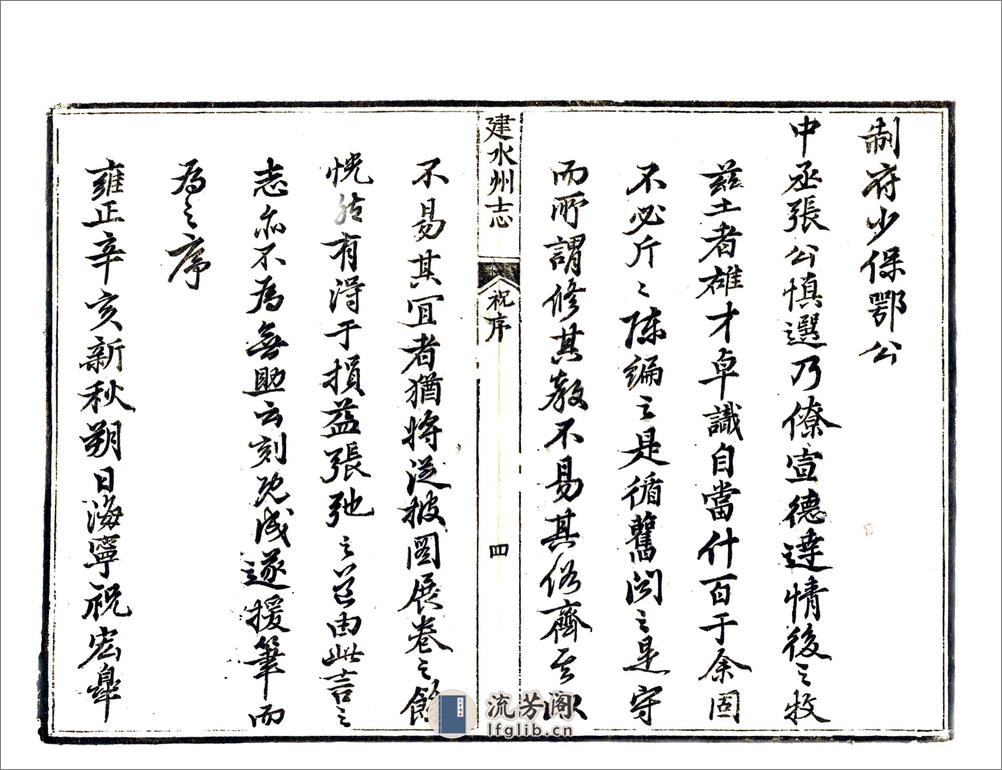 制府少保鄂公
中丞張公慎選乃僚宣德達情後之牧
茲土者雄才卓識自當什百于余固
不必斤〻陳編之是循舊聞之是守
而所謂修其教不易其俗齊其政
建水州志
祝序
四
不易其宜者猶將從披圖展卷之餘
恍然有得于損益張弛之道由此言之
志亦不為無助云刻既成遂援筆而
為之序
雍正辛亥新秋朔日海寧祝宏臯
流芳阁
lfglib.cn